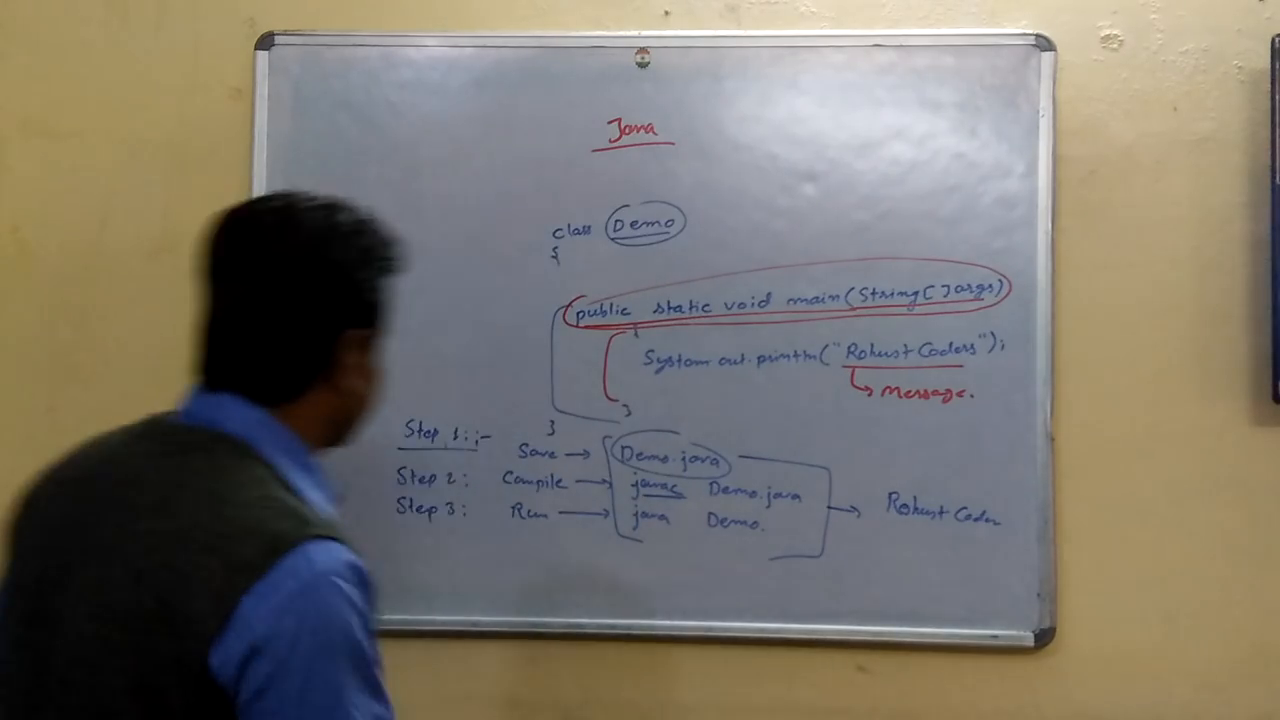 Java
class Demo
{
public static void main(String[]args)
{
System.out.println("Robust Coders");
→ Message.
}
}
Step 1:;- Save → Demo.java
Step 2: Compile → javac Demo.java
Step 3: Run → java Demo. → Robust Coder